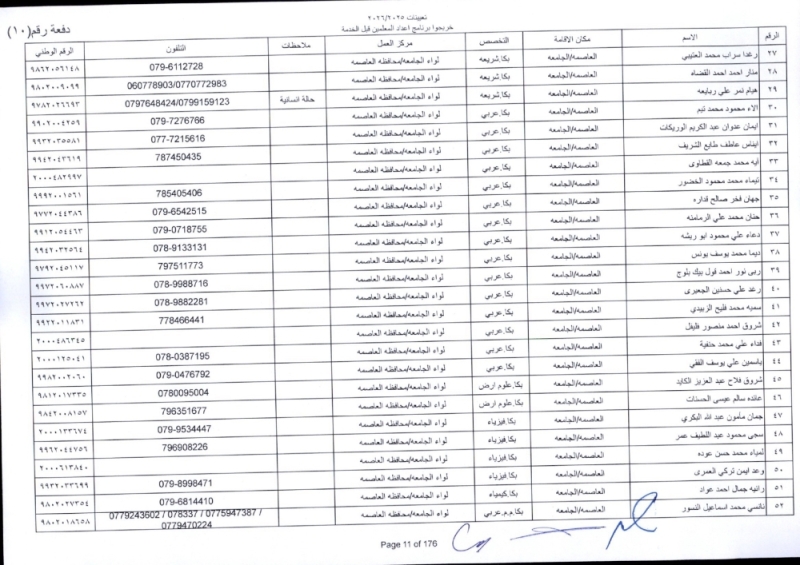 تعيينات ٢٠٢٦/٢٠٢٥
خريجوا برنامج اعداد المعلمين قبل الخدمة
دفعة رقم (١٠)
الرقم الاسم مكان الاقامة التخصص مركز العمل ملاحظات التلفون الرقم الوطني
٢٧ رغدا سراب محمد العتيبي العاصمه/الجامعه بكا.شريعه لواء الجامعه/محافظه العاصمه 079-6112728 ٩٨٦٢٠٥٦١٤٨
٢٨ منار احمد احمد القضاه العاصمه/الجامعه بكا.شريعه لواء الجامعه/محافظه العاصمه 060778903/0770772983 ٩٨٠٢٠٠٩٠٩٩
٢٩ هيام نمر علي ربايعه العاصمه/الجامعه بكا.شريعه لواء الجامعه/محافظه العاصمه حالة انسانية 0797648424/0799159123 ٩٧٨٢٠٢٦٦٩٣
٣٠ الاء محمود محمد تيم العاصمه/الجامعه بكا.عربي لواء الجامعه/محافظه العاصمه 079-7276766 ٩٩٠٢٠٠٤٢٥٩
٣١ ايمان عدوان عبد الكريم الوريكات العاصمه/الجامعه بكا.عربي لواء الجامعه/محافظه العاصمه 077-7215616 ٩٩٣٢٠٣٥٥٨١
٣٢ ايناس عاطف طايع الشريف العاصمه/الجامعه بكا.عربي لواء الجامعه/محافظه العاصمه 787450435 ٩٩٤٢٠٤٣٦١٩
٣٣ ايه محمد جمعه القطاوى العاصمه/الجامعه بكا.عربي لواء الجامعه/محافظه العاصمه ٢٠٠٠٤٨٢٩٩٧
٣٤ تيماء محمد محمود الخضور العاصمه/الجامعه بكا.عربي لواء الجامعه/محافظه العاصمه 785405406 ٩٩٩٢٠٠١٥٦١
٣٥ جهان فخر صالح قداره العاصمه/الجامعه بكا.عربي لواء الجامعه/محافظه العاصمه 079-6542515 ٩٧٧٢٠٤٤٣٨٦
٣٦ حنان محمد علي الرمامنه العاصمه/الجامعه بكا.عربي لواء الجامعه/محافظه العاصمه 079-0718755 ٩٩١٢٠٥٤٤٦٣
٣٧ دعاء علي محمود ابو ريشه العاصمه/الجامعه بكا.عربي لواء الجامعه/محافظه العاصمه 078-9133131 ٩٩٤٢٠٣٢٥٦٤
٣٨ ديما محمد يوسف يونس العاصمه/الجامعه بكا.عربي لواء الجامعه/محافظه العاصمه 797511773 ٩٧٩٢٠٤٥١١٧
٣٩ ربى نور احمد قول بيك بلوج العاصمه/الجامعه بكا.عربي لواء الجامعه/محافظه العاصمه 078-9988716 ٩٩٧٢٠٦٠٨٨٧
٤٠ رغد علي حسنين الجعبرى العاصمه/الجامعه بكا.عربي لواء الجامعه/محافظه العاصمه 078-9882281 ٩٩٧٢٠٢٧٢٦٢
٤١ سميه محمد فليح الزبيدي العاصمه/الجامعه بكا.عربي لواء الجامعه/محافظه العاصمه 778466441 ٩٩٢٢٠١١٨٣١
٤٢ شروق احمد منصور فليفل العاصمه/الجامعه بكا.عربي لواء الجامعه/محافظه العاصمه ٢٠٠٠٤٨٦٣٤٥
٤٣ فداء علي محمد حنفية العاصمه/الجامعه بكا.عربي لواء الجامعه/محافظه العاصمه 078-0387195 ٢٠٠٠١٢٥٠٤١
٤٤ ياسمين علي يوسف الفقي العاصمه/الجامعه بكا.عربي لواء الجامعه/محافظه العاصمه 079-0476792 ٩٩٨٢٠٠٢٠٦٠
٤٥ شروق فلاح عبد العزيز الكايد العاصمه/الجامعه بكا.علوم ارض لواء الجامعه/محافظه العاصمه 0780095004 ٩٨١٢٠١٧٣٣٥
٤٦ عائده سالم عيسى الحسنات العاصمه/الجامعه بكا.علوم ارض لواء الجامعه/محافظه العاصمه 796351677 ٩٨٤٢٠٠٨١٥٧
٤٧ جمان مأمون عبد الله البكري العاصمه/الجامعه بكا.فيزياء لواء الجامعه/محافظه العاصمه 079-9534447 ٢٠٠٠١٣٣٦٧٤
٤٨ سجى محمود عبد اللطيف عمر العاصمه/الجامعه بكا.فيزياء لواء الجامعه/محافظه العاصمه 796908226 ٩٩٦٢٠٤٤٧٥٦
٤٩ لمياء محمد حسن عوده العاصمه/الجامعه بكا.فيزياء لواء الجامعه/محافظه العاصمه ٢٠٠٠٦١٣٨٤٠
٥٠ وعد ايمن تركي العمرى العاصمه/الجامعه بكا.فيزياء لواء الجامعه/محافظه العاصمه 079-8998471 ٩٩٣٢٠٣٣٦٩٩
٥١ رانيه جمال احمد عواد العاصمه/الجامعه بكا.كيمياء لواء الجامعه/محافظه العاصمه 079-6814410 ٩٨٠٢٠٢٧٣٥٤
٥٢ نانسي محمد اسماعيل النسور العاصمه/الجامعه بكا.م.م.عربي لواء الجامعه/محافظه العاصمه 0779243602 / 078337 / 0775947387 / ٩٨٠٢٠١٨٦٥٨
0779470224
Page 11 of 176